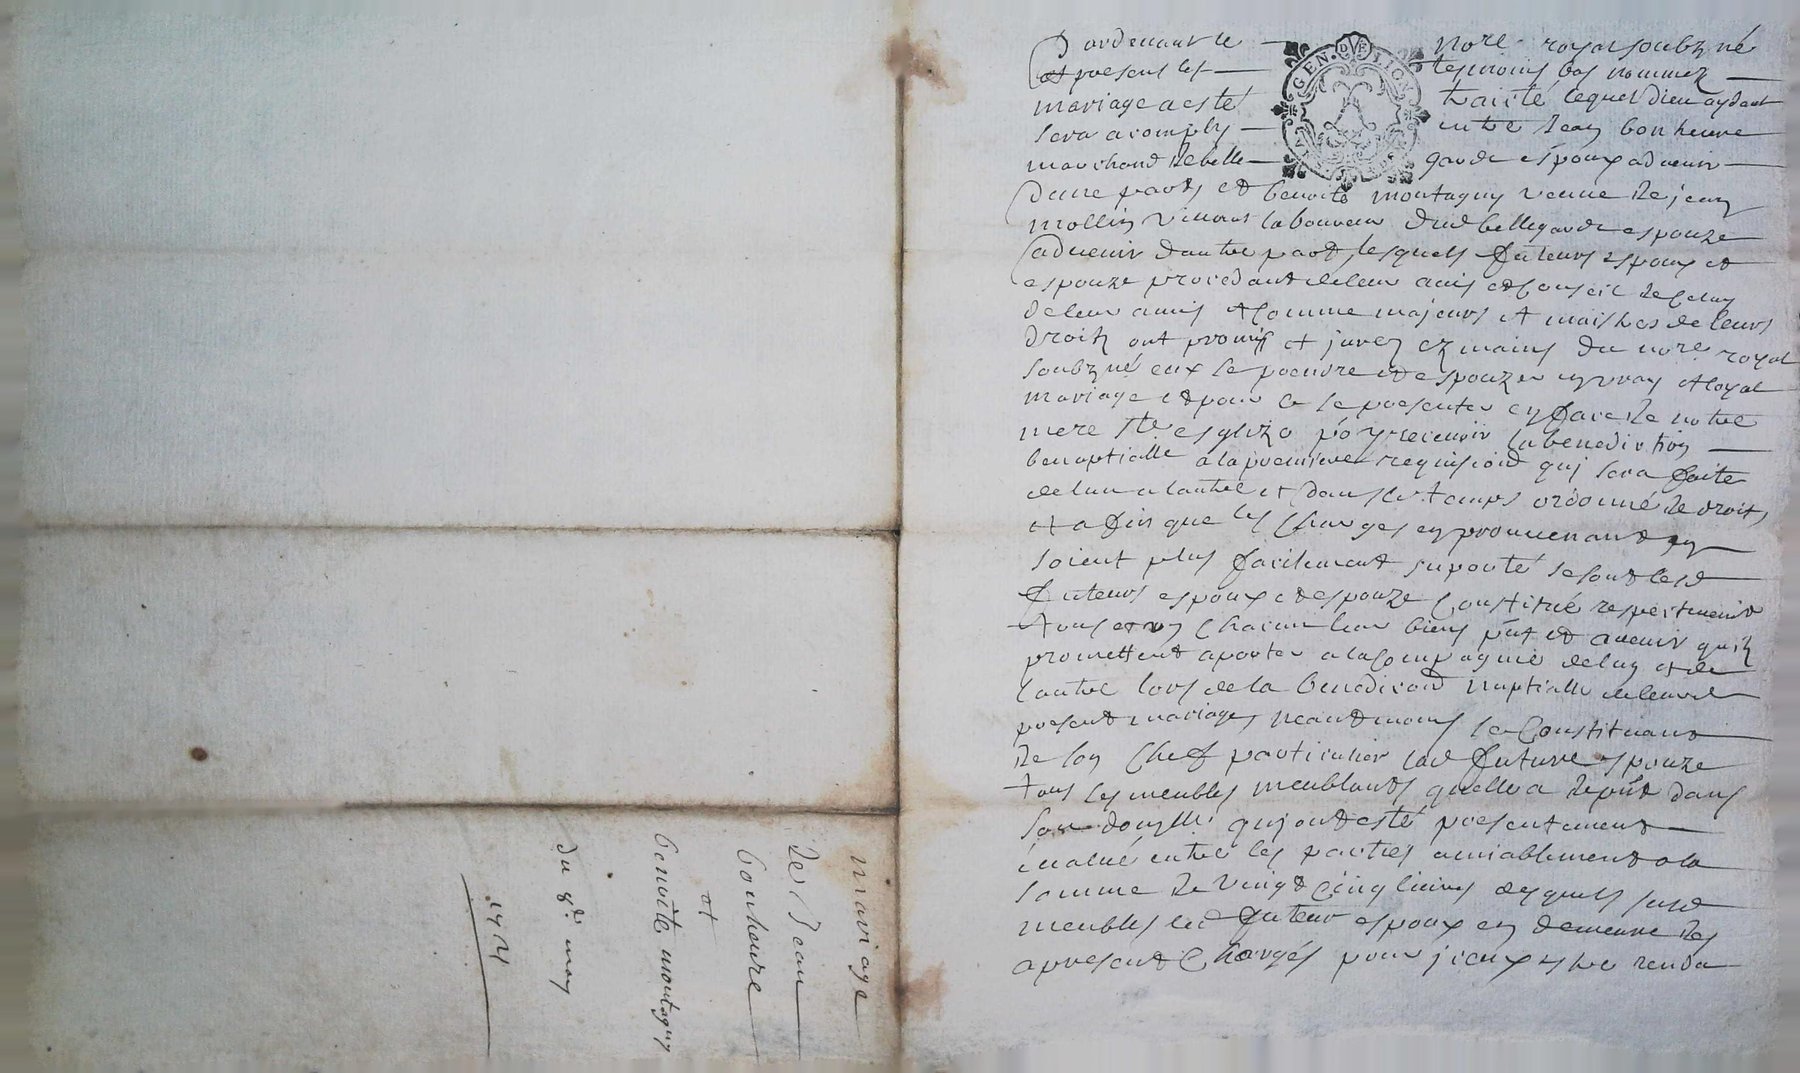 mariage
de s.r Jean
bonheure
et
benoite montagny
du 8.e may
1721
Pardevant le nore royal soubzné
et presens les tesmoins bas nommez
mariage a esté traicté lequel dieu aydant
sera acomply entre Jean bonheure
marchand de bellegarde espoux advenir
dune part et benoite montagny veuve de jean
mollin vivant laboureur dud bellegarde espouze
advenir dautre part, lesquels futeurs espoux et
espouze procedant de leur avis et conseil de celuy
de leur amis et comme majeurs et maistres de leurs
droitz ont promis et jurez ez mains du nore royal
soubzné eux se prendre et espouzer en vray et loyal
mariage et pour ce se presenter en face de notre
mere ste esglize pour y recevoir la benediction
nuptialle a la premiere requisiond qui sera faite
de lun a lautre et dans les temps ordonné de droit,
et a fin que les charges en provenant
soient plus facilement suporté se sont lesd
futeurs espoux et espouze constitué respectivement
tous et un chacun leur biens pnt et avenir quilz
promettent aporter a la compagnie de lun et de
lautre lors de la benediciond nuptialle de leurd
present mariage, neantmoins se constituant
de son chef particulier lad future espouze
tous les meubles meublants quelle a de pnt dans
son domylle qui ont esté presentement
évalué entre les parties amiablement a la
somme de vingt cinq livres desquels susd
meubles led futeur espoux en demeure des
apresent chargés pour jceux estre rendu